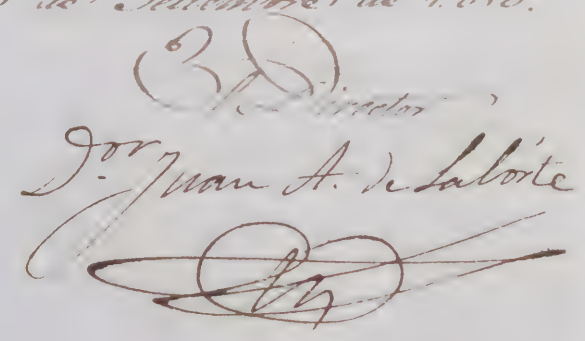 de Setiembre de
El Director
Dor. Juan A. de Laborte